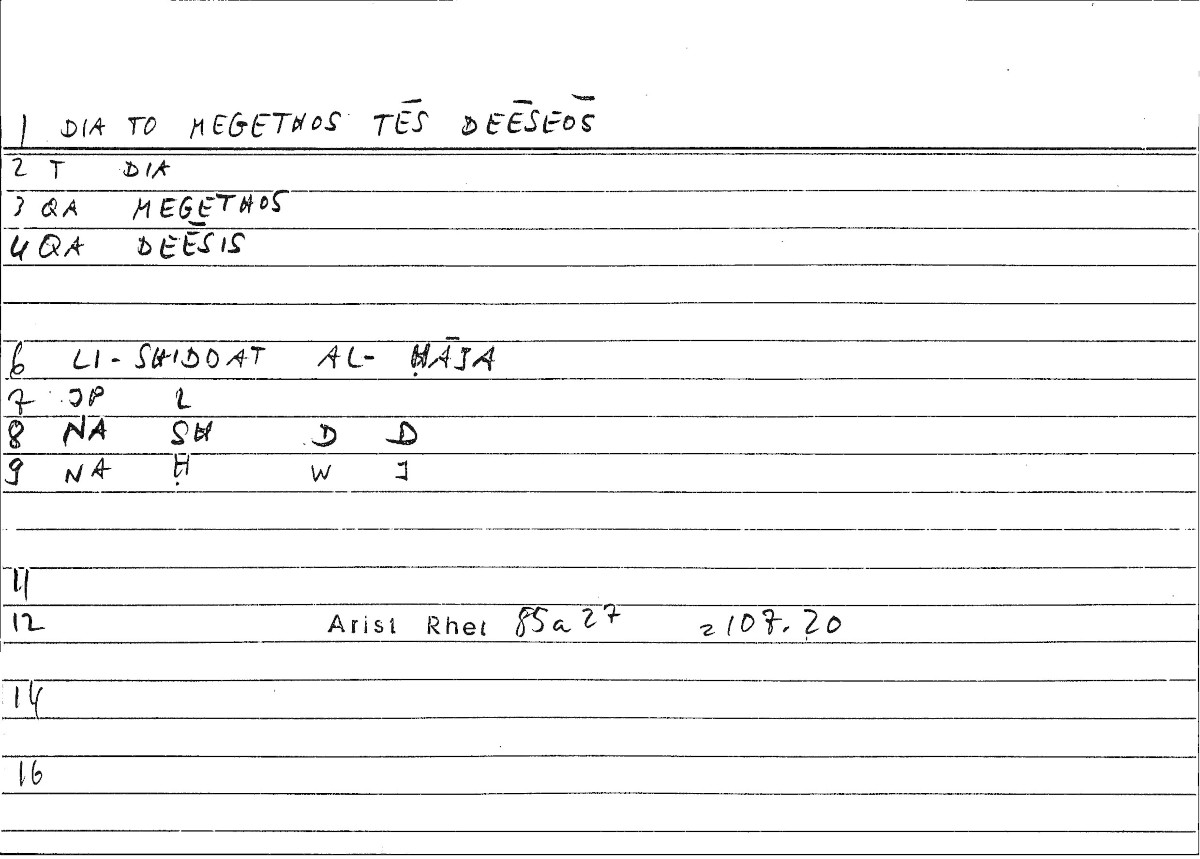 1 DIA TO MEGETHOS TĒS DEĒSEŌS
2 T DIA
3 QA MEGETHOS
4 QA DEĒSIS
6 LI- SHIDDAT AL- ḤĀJA
7 JP L
8 NA SH D D
9 NA Ḥ W J
11
12 Arist Rhet 85a27 =107.20
14
16